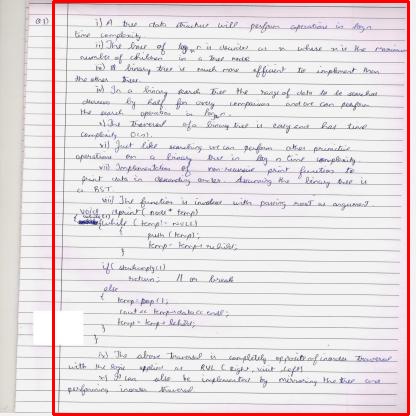 Q1) i) A tree data structure will perform operations in logn
time complexity.
ii) The base of logn n is denoted as n where n is the maximum
number of children in a tree node.
iii) A binary tree is much more efficient to implement than
the other trees.
iv) In a binary search tree the range of data to be searched
decreases by half for every comparison and we can perform
the search operation in logn.
v) The traversal of a binary tree is easy and has time
complexity O(n).
vi) Just like searching we can perform other primitive
operations on a binary tree in log n time complexity
vii) Implementation of non-recursive print function to
print data in descending order. Assuming the binary tree is
a BST.
viii) The function is invoked with passing root as argument.
void dprint (node * temp)
{ while (temp != NULL)
{
push (temp);
temp = temp → rchild;
}
if (stackempty())
return; // or break
else
{
temp = pop();
cout << temp → data << endl;
temp = temp → lchild;
}
}
ix) The above traversal is completely opposite of inorder traversal
with the logic applied as RVL (right, visit, left)
x) It can also be implemented by mirroring the tree and
performing inorder traversal